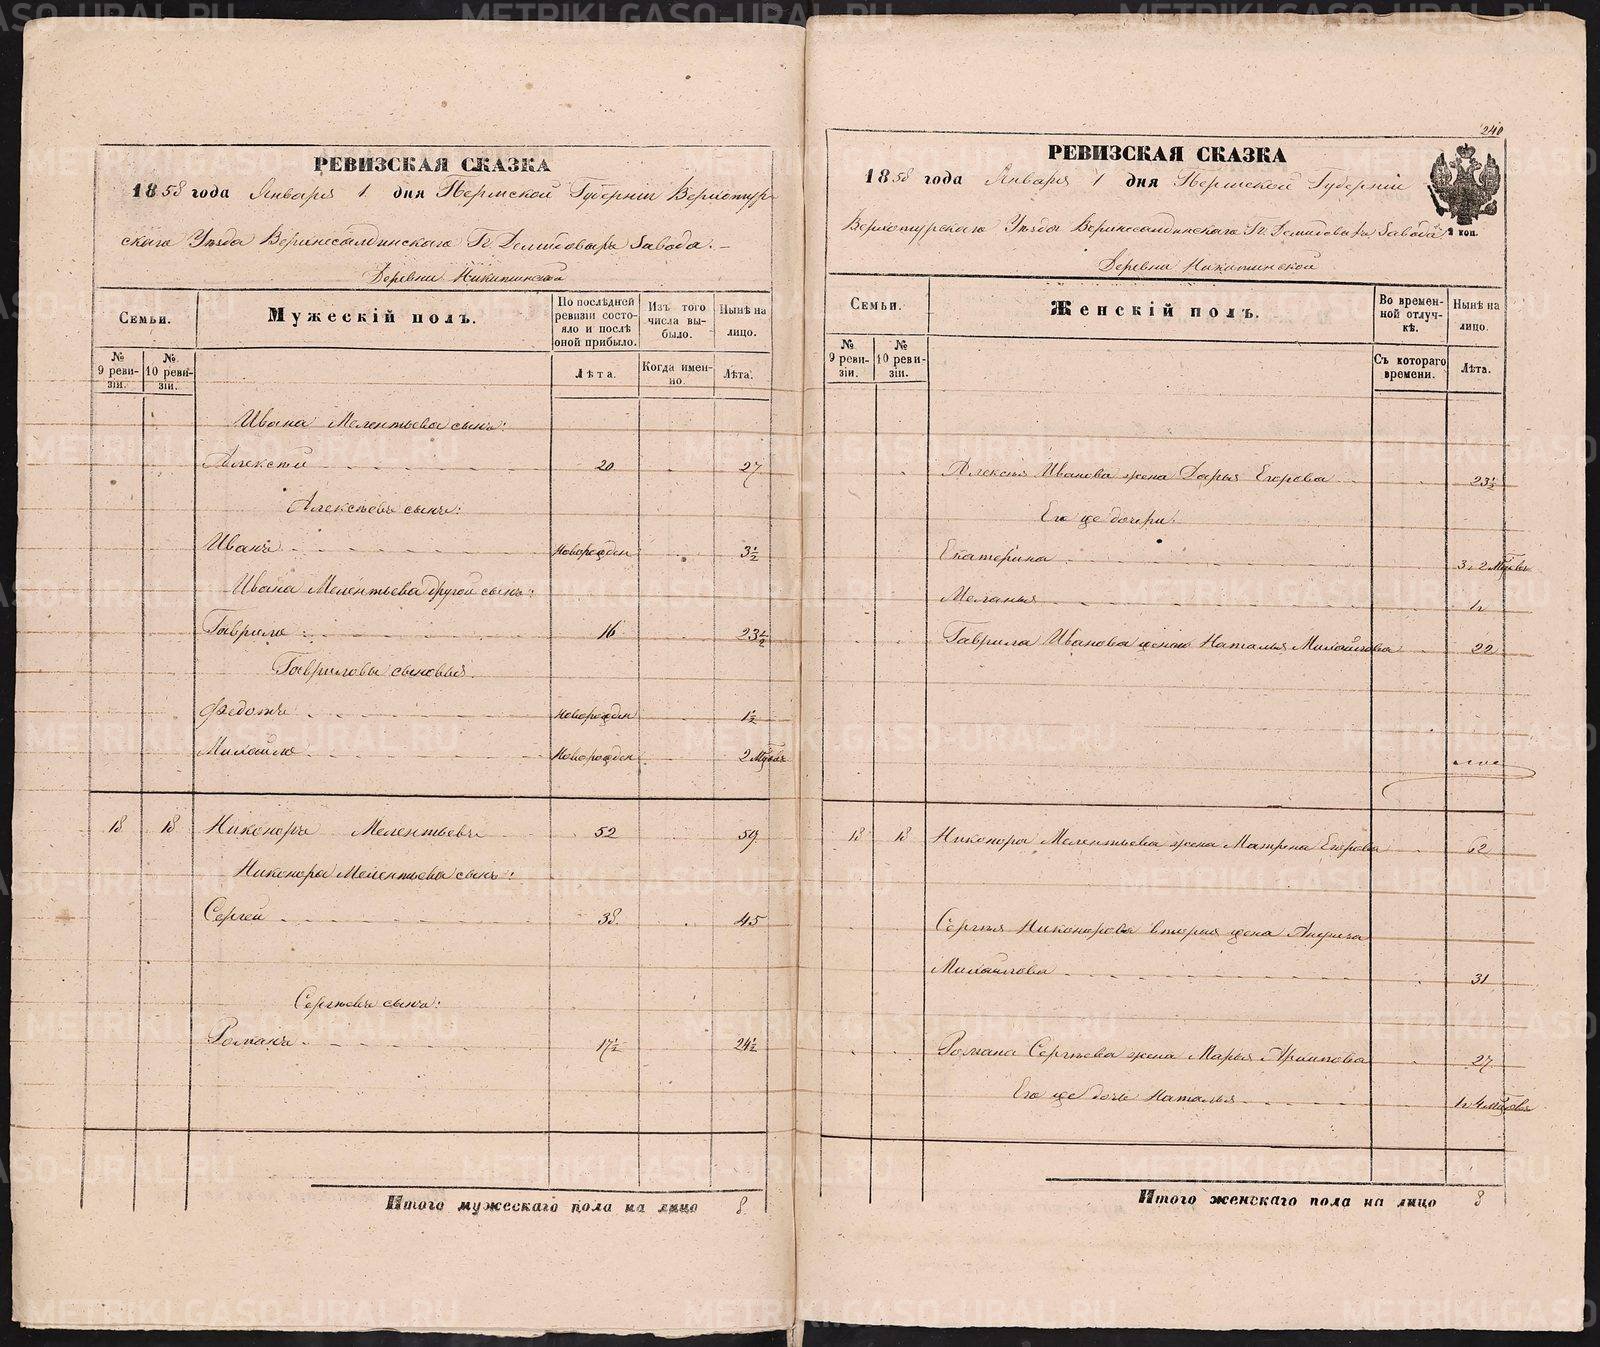 РЕВИЗСКАЯ СКАЗКА
1858 года Января 1 дня Пермской Губерніи Верхотур-
скаго Уѣзда Верхнесалдинскаго Гг. Демидовыхъ Завода.
Деревни Никитинской
Семьи.
Мужескій полъ.
По послѣдней ревизіи состояло и послѣ оной прибыло.
Изъ того числа выбыло.
Нынѣ на лицо.
№ 9 ревизіи.
№ 10 ревизіи.
Лѣта.
Когда именно.
Лѣта.
Ивана Мелентьева сынъ:
Алексѣй 20 27
Алексѣевъ сынъ:
Иванъ новорожден 3½
Ивана Мелентьева другой сынъ:
Гаврило 16 23½
Гавриловы сыновья.
Федотъ новорожден 1½
Михайло новорожден 2 мѣсяцъ
18 18 Никоноръ Мелентьевъ 52 59
Никонора Мелентьева сынъ:
Сергей 38. 45
Сергѣевъ сынъ:
Романъ 17½ 24½
Итого мужескаго пола на лицо 8
240
РЕВИЗСКАЯ СКАЗКА
1858 года Января 1 дня Пермской Губерніи
Верхотурскаго Уѣзда Верхнесалдинскаго Гг. Демидовыхъ Завода
2 коп.
Деревни Никитинской
Семьи.
Женскій полъ.
Во временной отлучкѣ.
Нынѣ на лицо.
№ 9 ревизіи.
№ 10 ревизіи.
Съ котораго времени.
Лѣта.
Алексѣя Иванова жена Дарья Егорова 23½
Его же дочери.
Екатерина 3 г 2 мѣсяцъ
Меланья 1 г
Гаврила Иванова жена Наталья Михайлова 22
18 18 Никонора Мелентьева жена Матрена Егорова 62
Сергѣя Никонорова вторая жена Анфиса
Михайлова 31
Романа Сергѣева жена Марья Архипова 27
Его же дочь Наталья 1 г 4 мѣсяцъ
Итого женскаго пола на лицо 8
METRIKI.GASO-URAL.RU